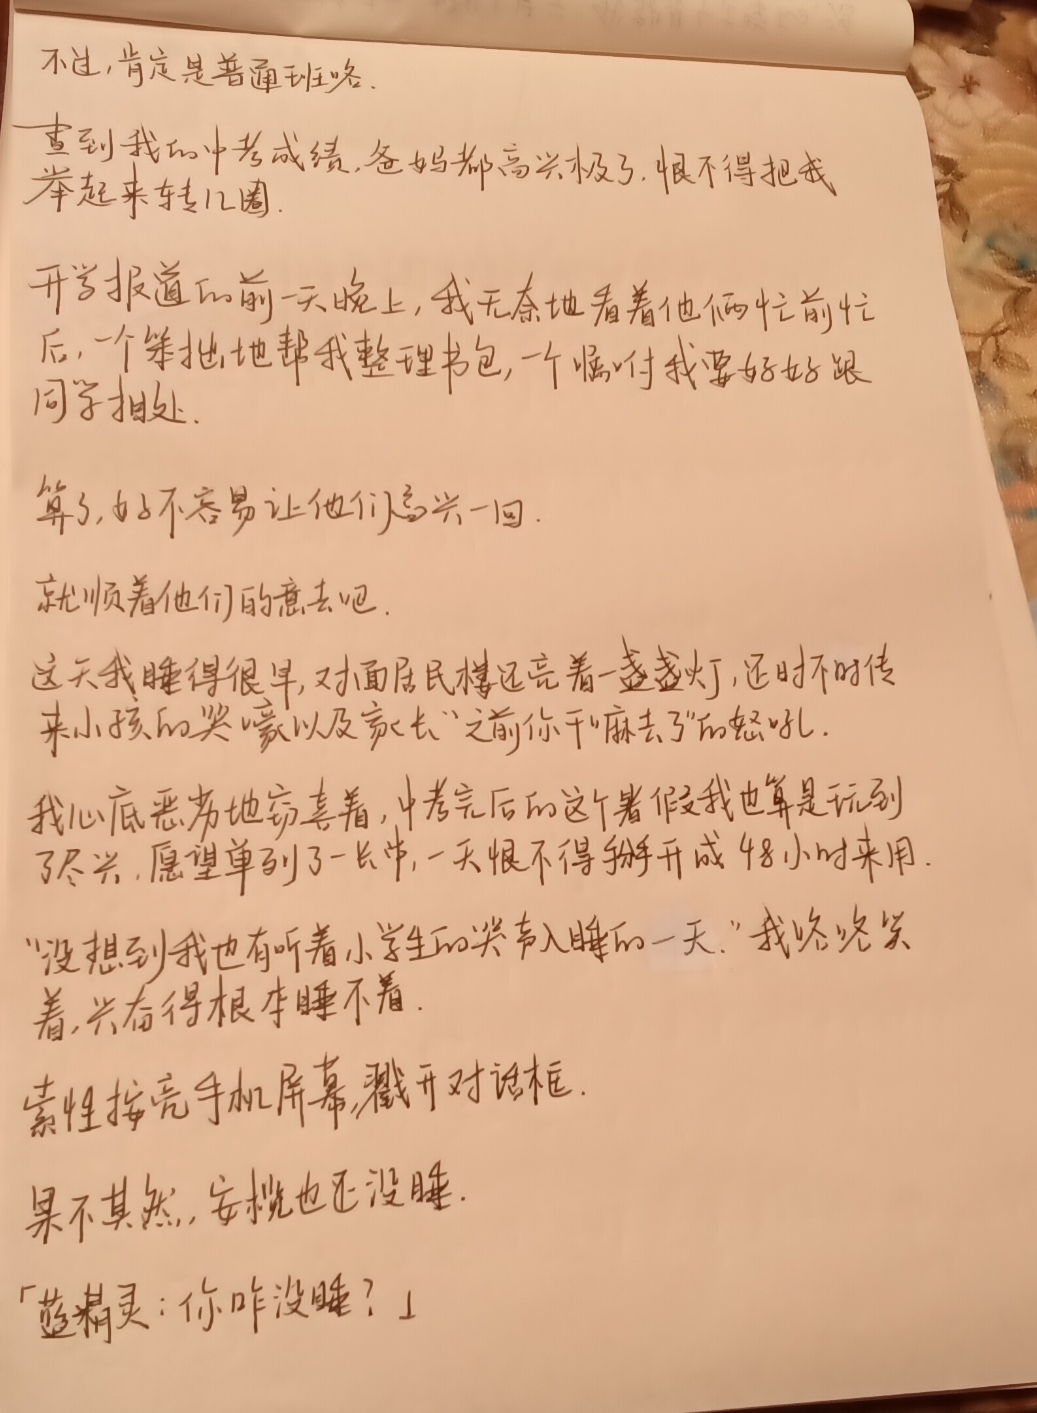 不过,肯定是普通班咯.
查到我的中考成绩,爸妈都高兴极了.恨不得把我
举起来转几圈.
开学报道的前一天晚上,我无奈地看着他俩忙前忙
后,一个笨拙地帮我整理书包,一个嘱咐我要好好跟
同学相处.
算了,好不容易让他们高兴一回.
就顺着他们的意去吧.
这天我睡得很早,对面居民楼还亮着一盏盏灯,还时不时传
来小孩的哭嚎以及家长“之前你干嘛去了”的怒吼.
我心底恶劣地窃喜着,中考完后的这个暑假我也算是玩到
了尽兴.愿望单列了一长串,一天恨不得掰开成48小时来用.
“没想到我也有听着小学生的哭声入睡的一天.”我咯咯笑
着,兴奋得根本睡不着.
索性按亮手机屏幕,戳开对话框.
果不其然,安榄也还没睡.
「蓝精灵:你咋没睡?」